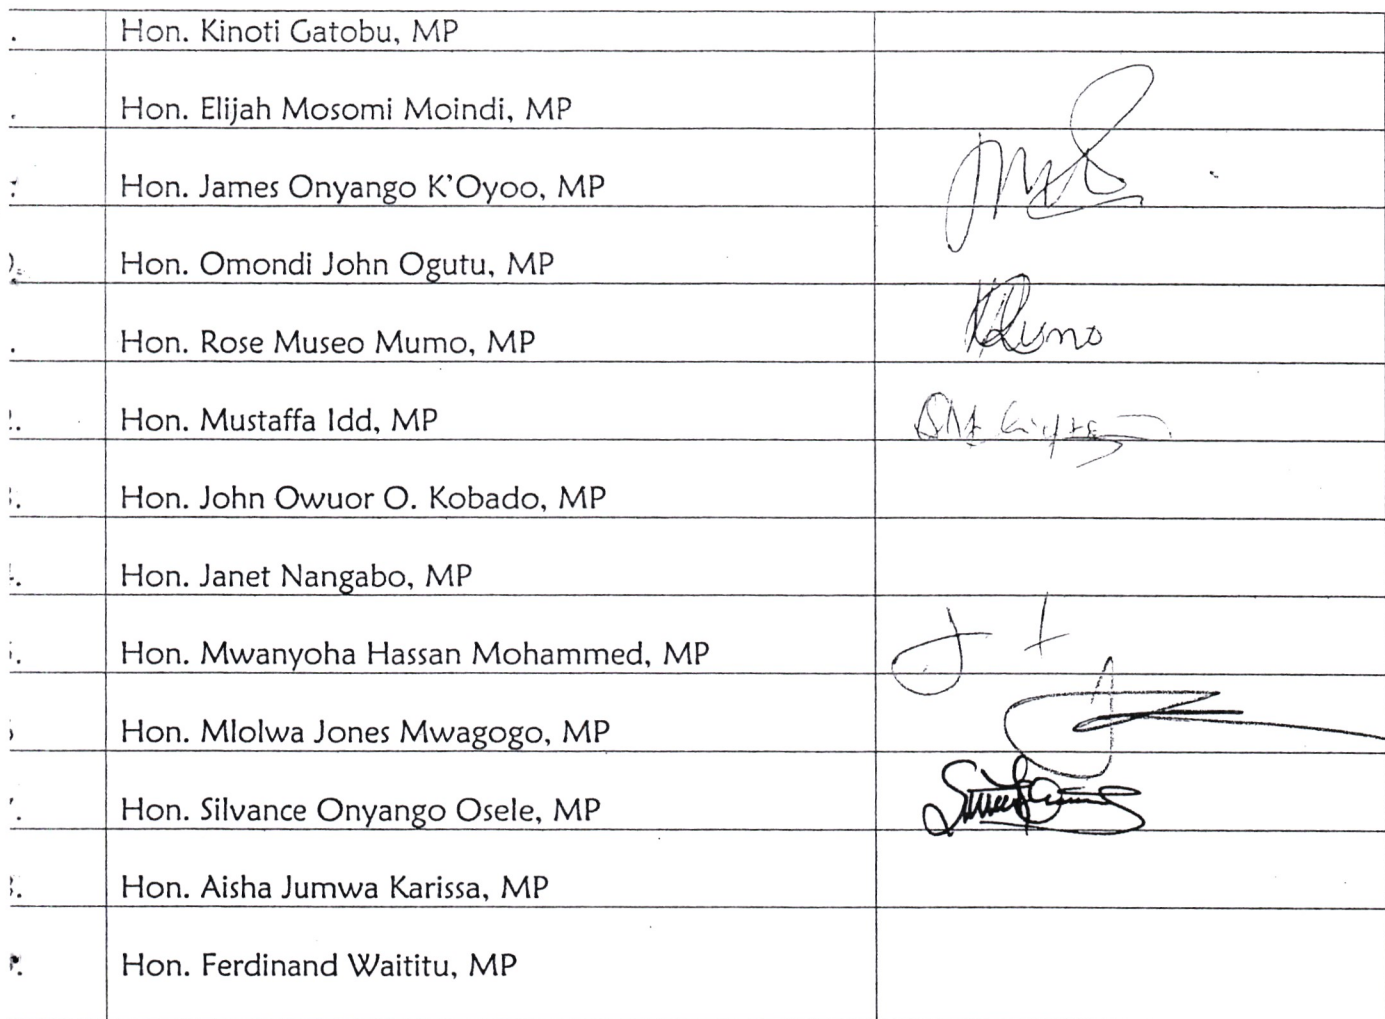 Hon. Kinoti Gatobu, MP
Hon. Elijah Mosomi Moindi, MP
Hon. James Onyango K'Oyoo, MP
Hon. Omondi John Ogutu, MP
Hon. Rose Museo Mumo, MP
Hon. Mustaffa Idd, MP
Hon. John Owuor O. Kobado, MP
Hon. Janet Nangabo, MP
Hon. Mwanyoha Hassan Mohammed, MP
Hon. Mlolwa Jones Mwagogo, MP
Hon. Silvance Onyango Osele, MP
Hon. Aisha Jumwa Karissa, MP
Hon. Ferdinand Waititu, MP